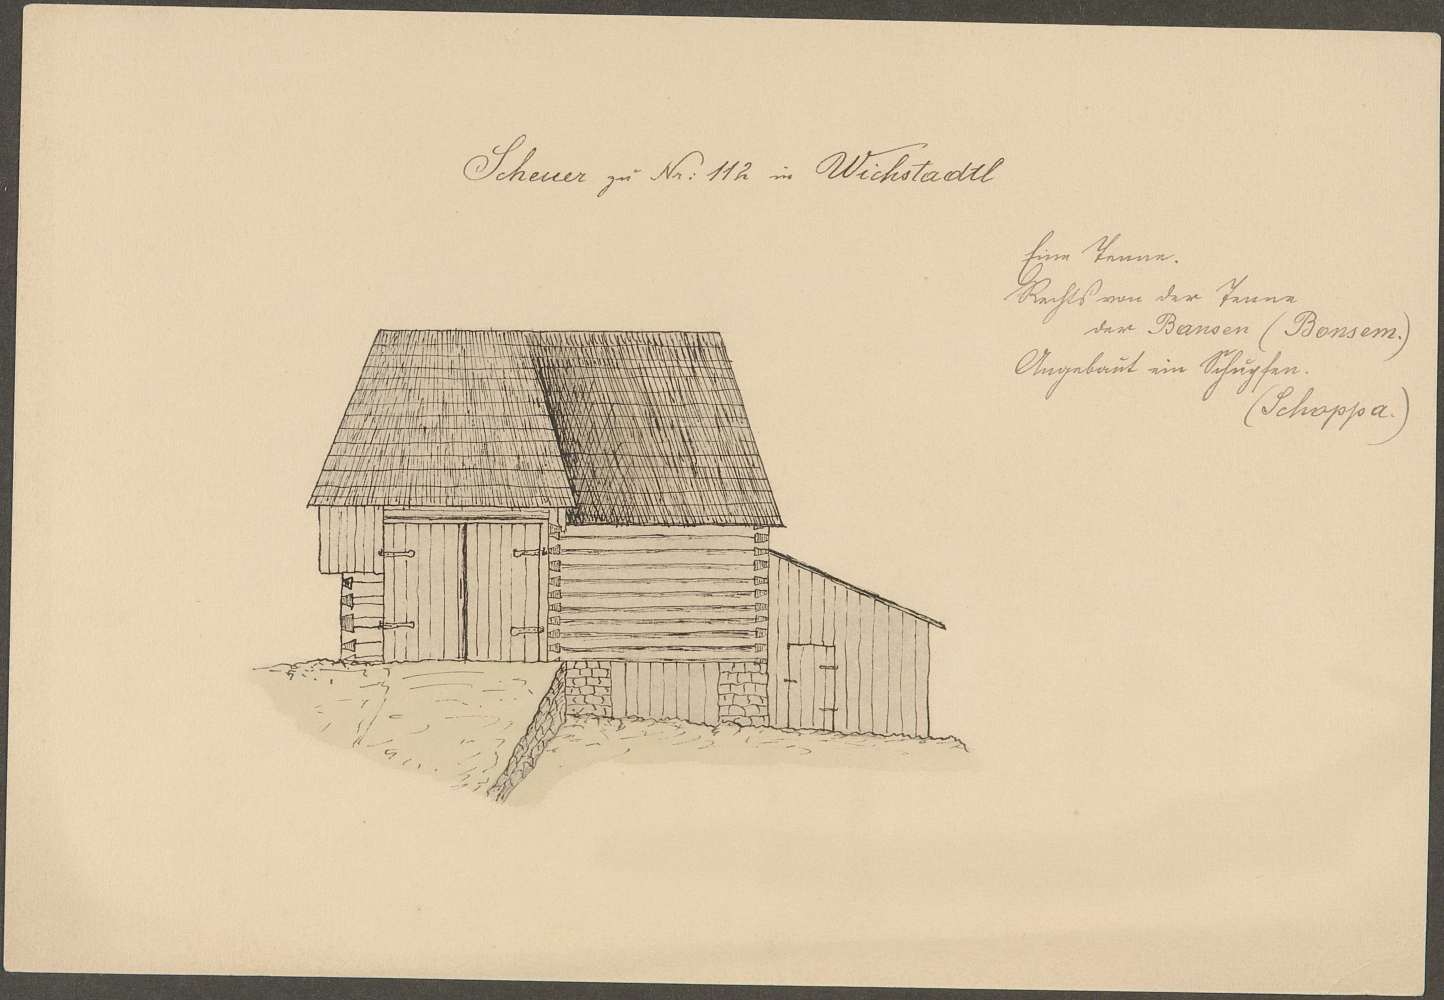 Scheuer zu Nr: 112 in Wichstadtl
Eine Tenne.
Rechts von der Tenne
der Bansen (Bonsem.)
Angebaut ein Schupfen.
(Schoppa.)